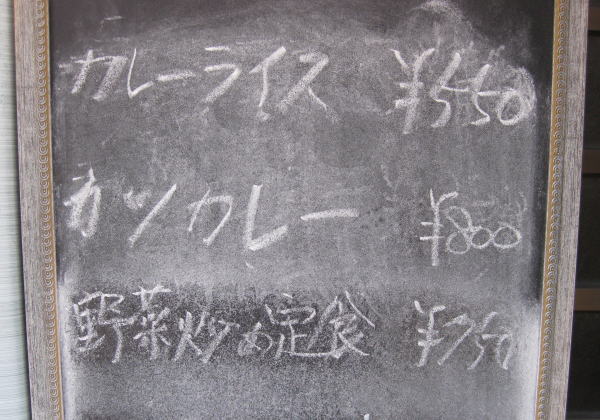 カレーライス ¥550
カツカレー ¥800
野菜炒め定食 ¥750